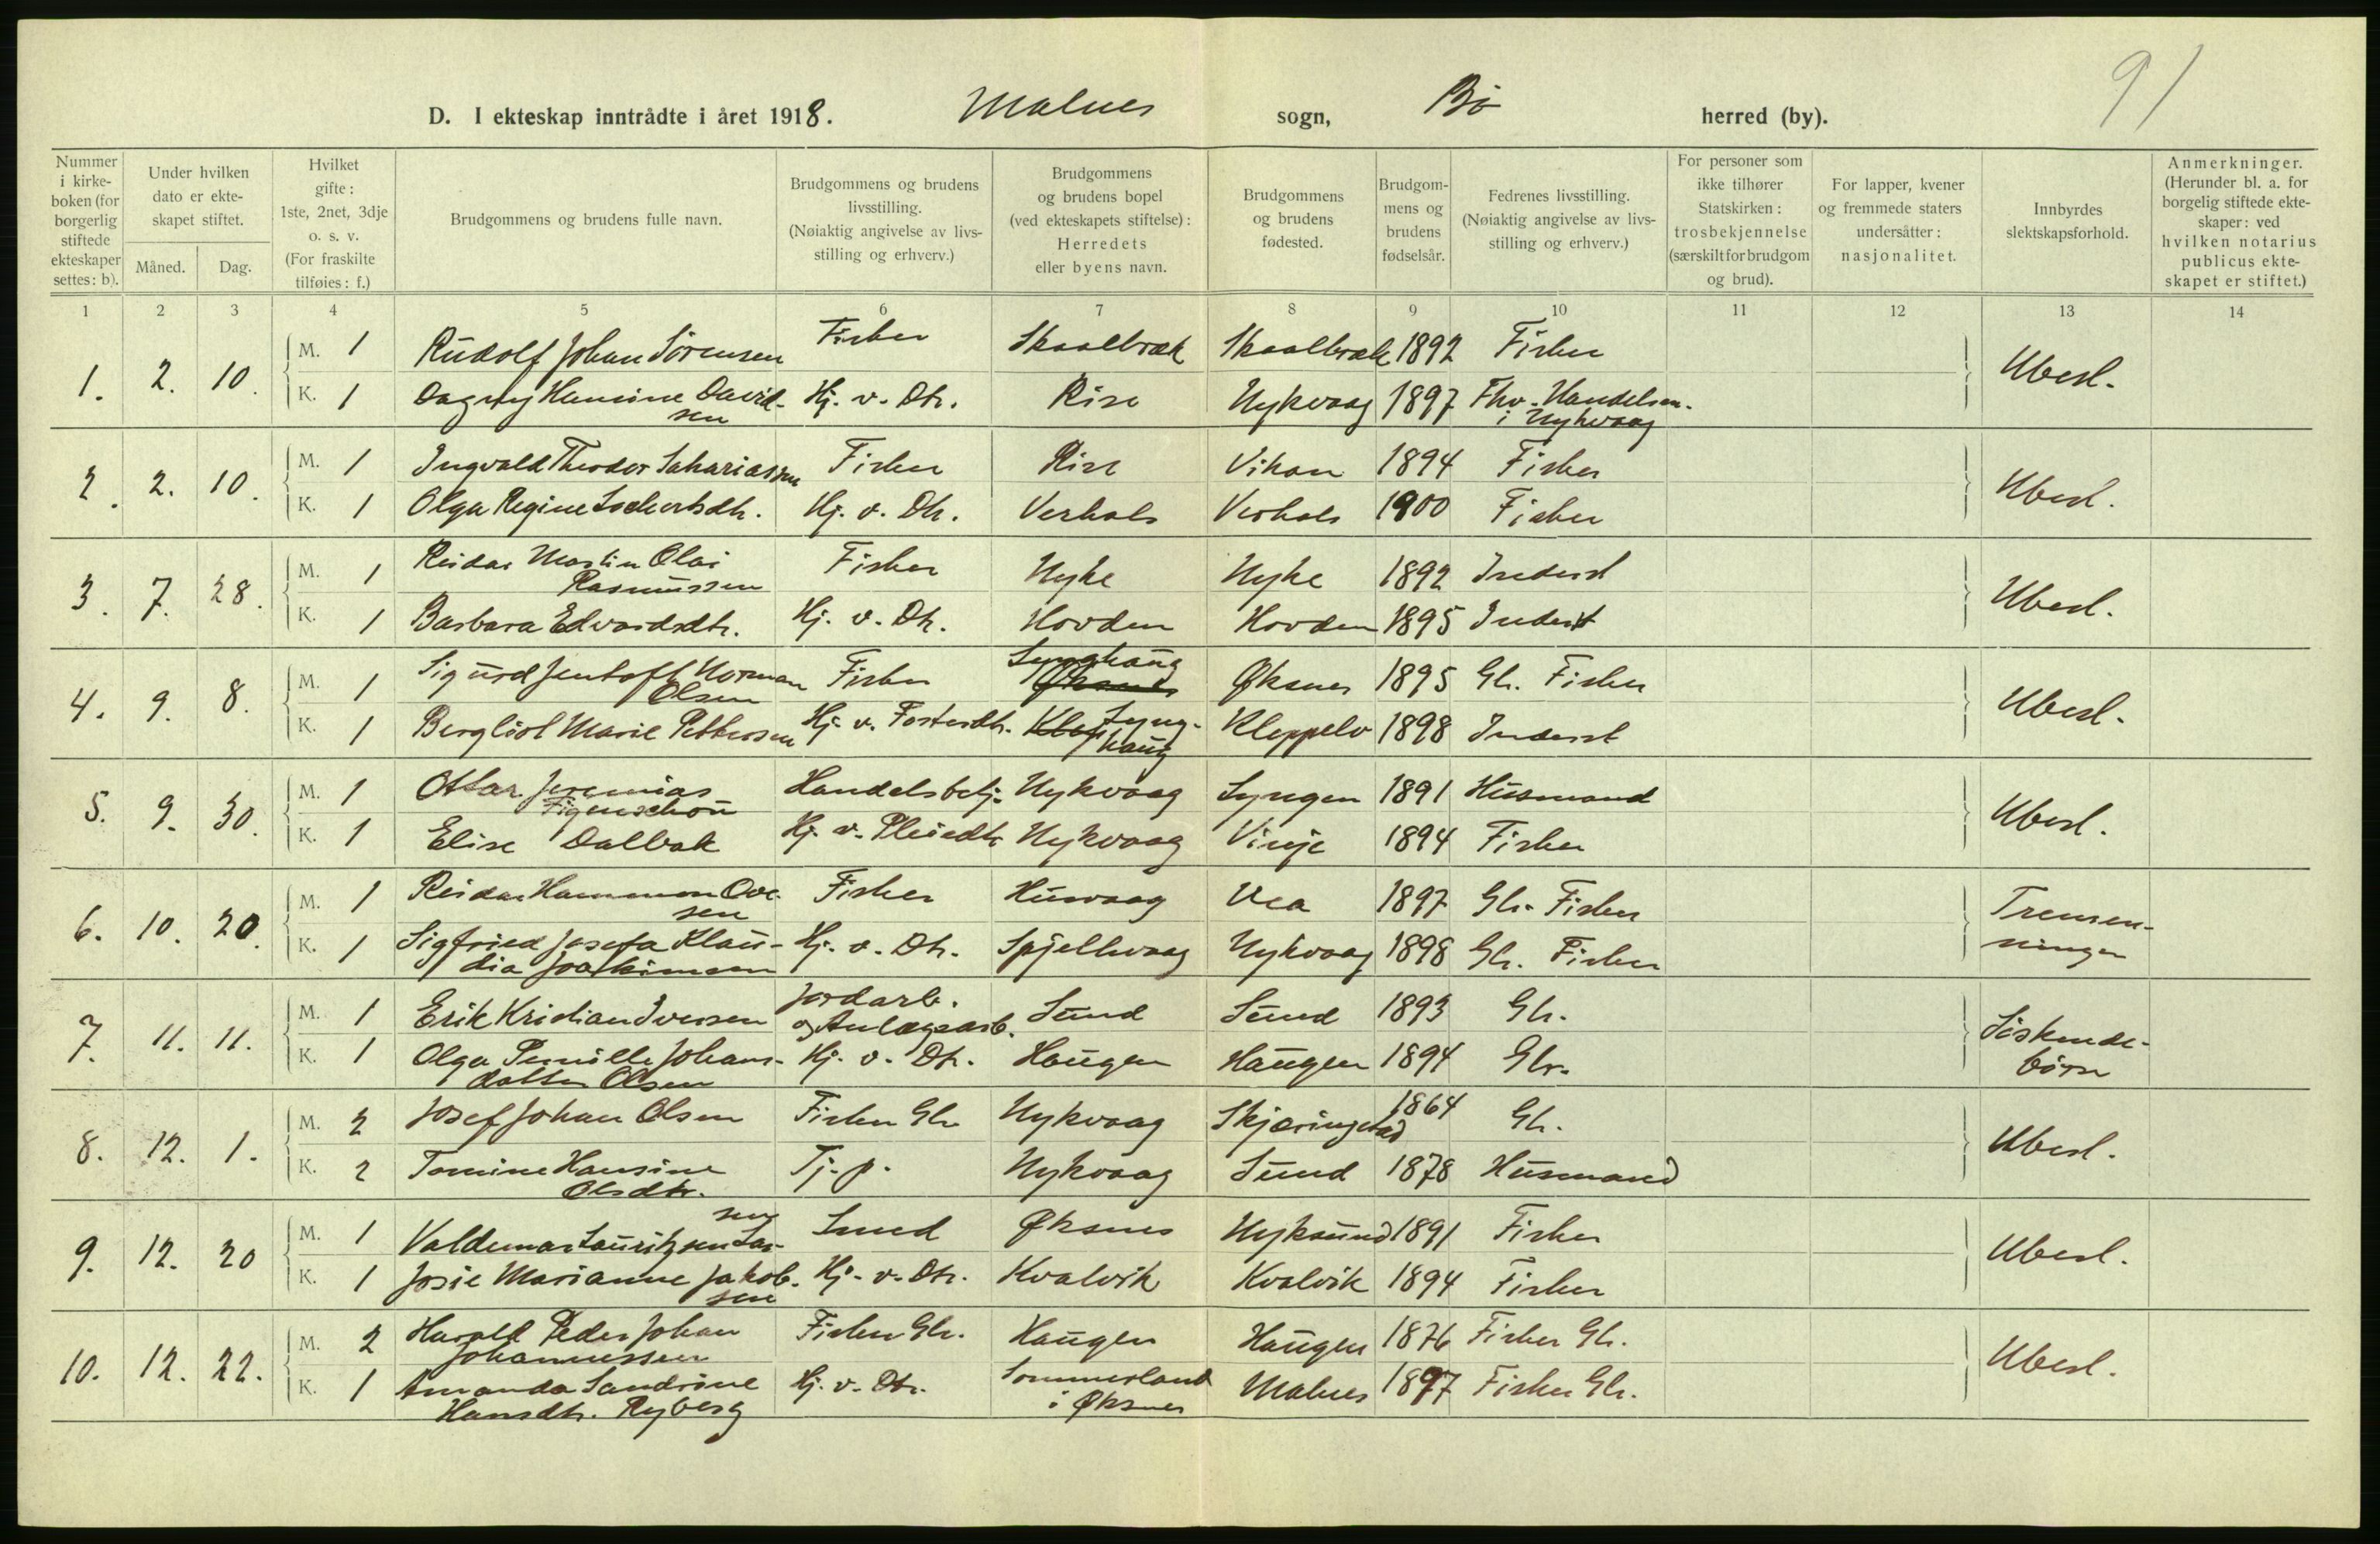 91
D. I ekteskap inntrådte i året 1918. Malnes sogn, Bø herred (by).
Nummer i kirkeboken (for borgerlig stiftede ekteskaper settes: b).
Under hvilken dato er ekteskapet stiftet.
Måned. Dag.
Hvilket gifte: 1ste, 2net, 3dje o. s. v. (For fraskilte tilføies: f.)
Brudgommens og brudens fulle navn.
Brudgommens og brudens livsstilling. (Nøiaktig angivelse av livsstilling og erhverv.)
Brudgommens og brudens bopel (ved ekteskapets stiftelse): Herredets eller byens navn.
Brudgommens og brudens fødested.
Brudgommens og brudens fødselsår.
Fedrenes livsstilling. (Nøiaktig angivelse av livsstilling og erhverv.)
For personer som ikke tilhører Statskirken: trosbekjennelse (særskilt for brudgom og brud).
For lapper, kvener og fremmede staters undersåtter: nasjonalitet.
Innbyrdes slektskapsforhold.
Anmerkninger. (Herunder bl. a. for borgelig stiftede ekteskaper: ved hvilken notarius publicus ekteskapet er stiftet.)
1 2 3 4 5 6 7 8 9 10 11 12 13 14
1. 2. 10. M. 1 Rudolf Johan Sørensen Fisker Skaalbræk Skaalbræk 1892 Fisker Ubesl.
K. 1 Dagny Hansine Davidsen Hj. v. Dtr. Rise Nykvaag 1897 Fhv. Handelsm. i Nykvaag
2. 2. 10. M. 1 Ingvald Theodor Sakariassen Fisker Rise Vikan 1894 Fisker Ubesl.
K. 1 Olga Regine Hj. v. Dtr. Verhals Verhals 1900 Fisker
3. 7. 28. M. 1 Reidar Martin Olai Rasmussen Fisker Nyke Nyke 1892 Inderst Ubesl.
K. 1 Barbara Edvardsdtr. Hj. v. Dtr. Hovden Hovden 1895 Inderst
4. 9. 8. M. 1 Sigurd Jentoft Norman Olsen Fisker Lynghaug Øksnes Øksnes 1895 Gbr. Fisker Ubesl.
K. 1 Bergliot Marie Pettersen Hj. v. Fosterdtr. Lynghaug Kleppelv 1898 Inderst
5. 9. 30. M. 1 Ottar Jeremias Figenschou Handelsbetj. Nykvaag Lyngen 1891 Husmand Ubesl.
K. 1 Elise Dalbak Hj. v. Pleiedtr. Nykvaag Vinje 1894 Fisker
6. 10. 20. M. 1 Reidar Hammon Ovesen Fisker Husvaag Vea 1897 Gbr. Fisker Tremenninger
K. 1 Sigfried Josefa Klaudia Joakimsen Hj. v. Dtr. Spjellvaag Nykvaag 1898 Gbr. Fisker
7. 11. 11. M. 1 Erik Kristian Iversen Jordarb. og Anlægsarb. Sund Sund 1893 Gbr. Søskendebørn
K. 1 Olga Pernille Johansdatter Olsen Hj. v. Dtr. Haugen Haugen 1894 Gbr.
8. 12. 1. M. 2 Josef Johan Olsen Fisker Gbr Nykvaag Skjæringstad 1864 Gbr. Ubesl.
K. 2 Tomine Hansine Olsdtr. Tj. p. Nykvaag Sund 1878 Husmand
9. 12. 20 M. 1 Valdemar Lauritzsen Larsen Smed Øksnes Nyksund 1891 Fisker Ubesl.
K. 1 Josie Marianne Jakobsen Hj. v. Dtr. Kvalvik Kvalvik 1894 Fisker
10. 12. 22. M. 2 Harald Peder Johan Johannessen Fisker Gbr. Haugen Haugen 1876 Fisker Gbr. Ubesl.
K. 1 Amanda Sandrine Hansdtr. Ryberg Hj. v. Dtr. Sommerland i Øksnes Malnes 1897 Fisker Gbr.